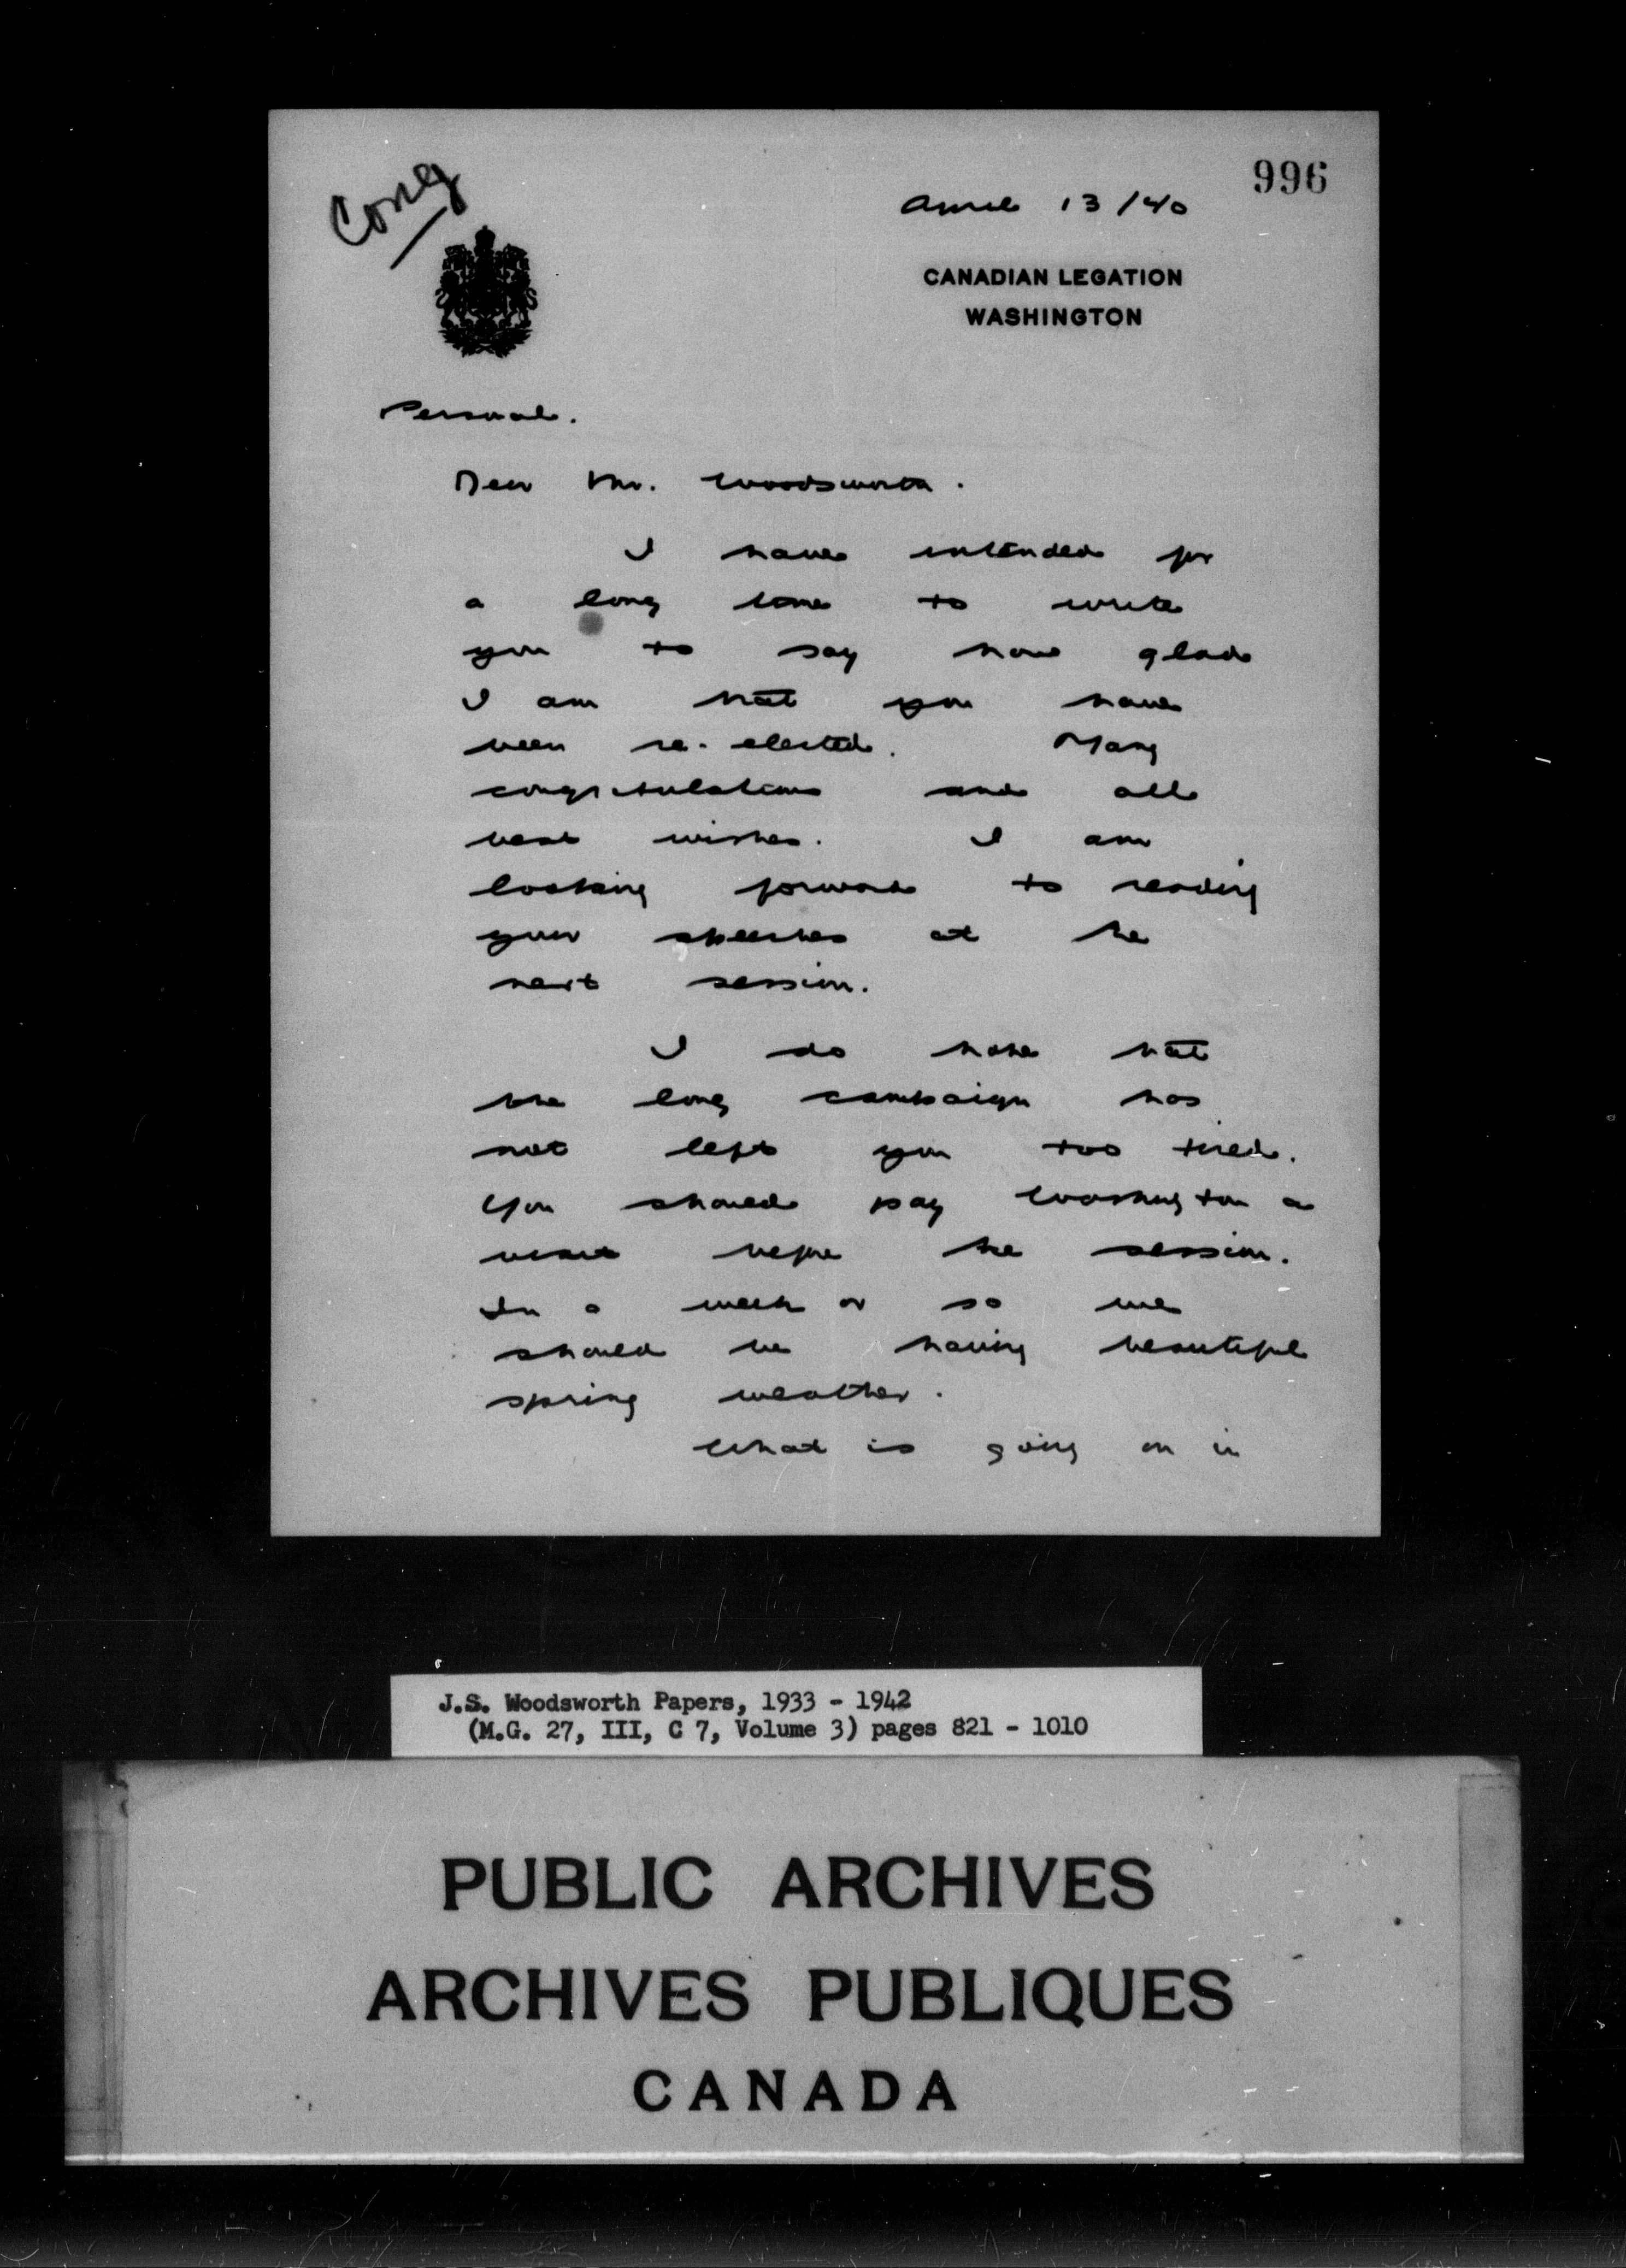 996
Cong
April 13/40
CANADIAN LEGATION
WASHINGTON
Personal.
Dear Mr. Woodsworth.
I have intended for
a long time to write
you to say how glad
I am that you have
been re-elected. Many
congratulations and all
best wishes. I am
looking forward to reading
your speeches at the
next session.
I do hope that
the long campaign has
not left you too tired.
You should pay Washington a
visit before the session.
In a week or so we
should be having beautiful
spring weather.
What is going on in
J.S. Woodsworth Papers, 1933 - 1942
(M.G. 27, III, C 7, Volume 3) pages 821 - 1010
PUBLIC ARCHIVES
ARCHIVES PUBLIQUES
CANADA